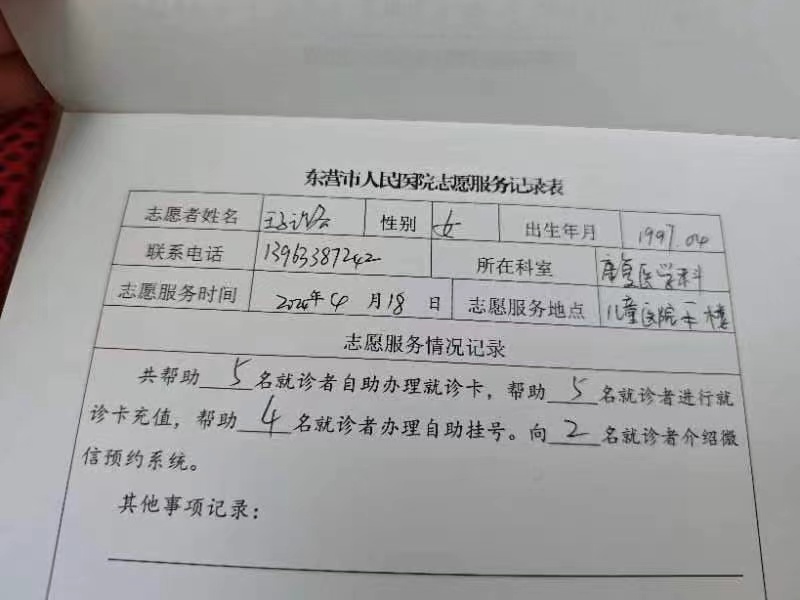 东营市人民医院志愿服务记录表
志愿者姓名 性别 女 出生年月 1997.04
联系电话 13963387242 所在科室 康复医学科
志愿服务时间 2024年4月18日 志愿服务地点 儿童医院一楼
志愿服务情况记录
共帮助5名就诊者自助办理就诊卡，帮助5名就诊者进行就
诊卡充值，帮助4名就诊者办理自助挂号。向2名就诊者介绍微
信预约系统。
其他事项记录：